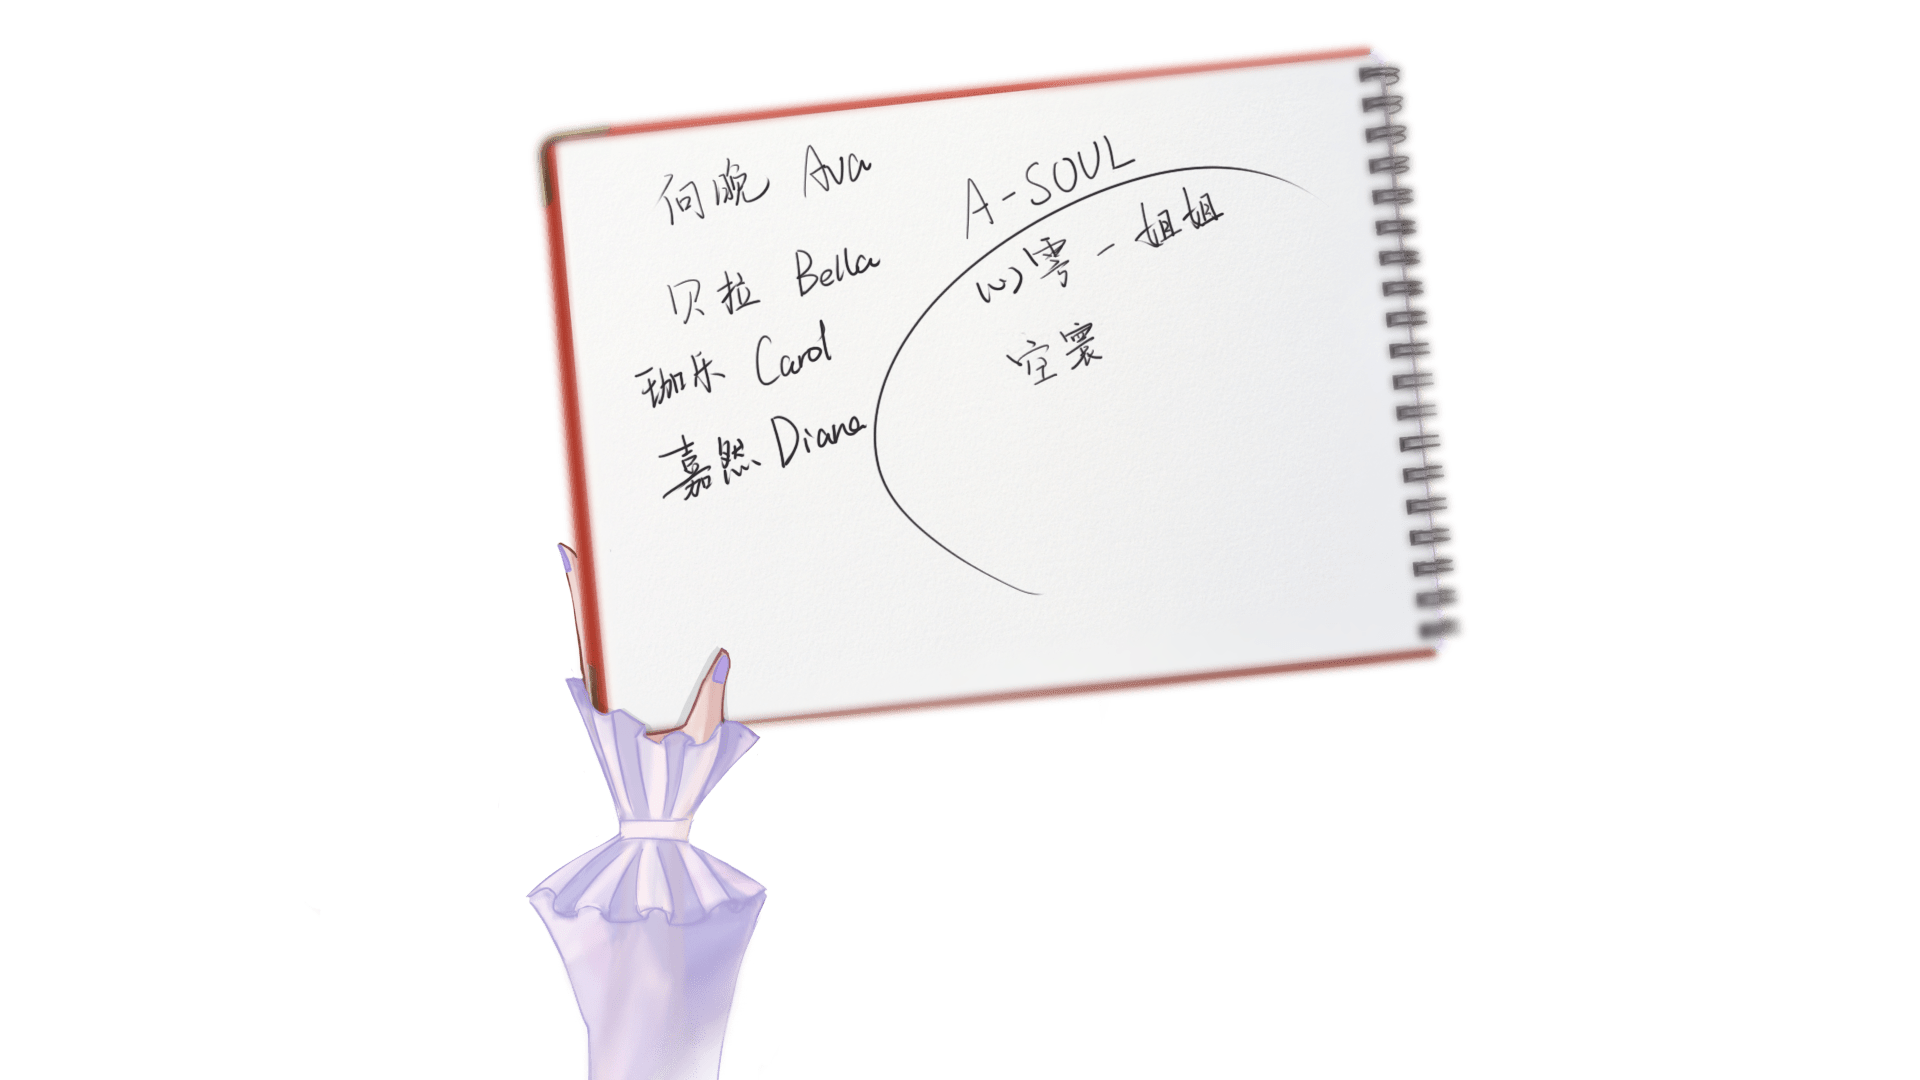 向晚 Ava
贝拉 Bella
珈乐 Carol
嘉然 Diana
A-SOUL
雩 - 姐姐
空寰